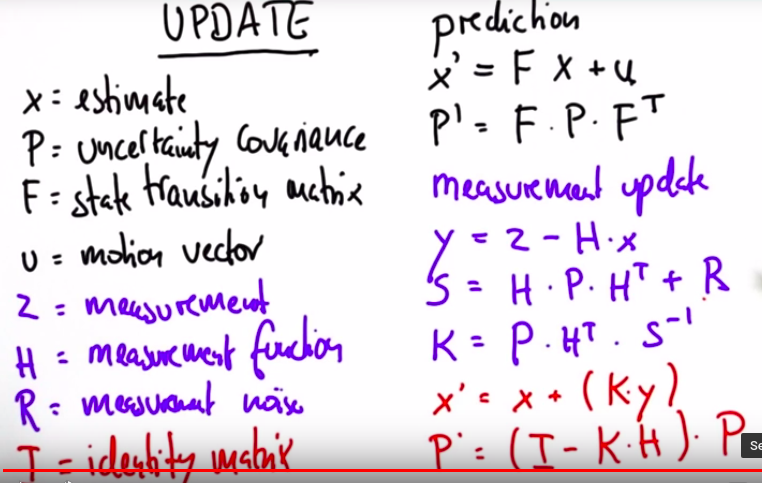 UPDATE
x = estimate
P = uncertainty covariance
F = state transition matrix
u = motion vector
z = measurement
H = measurement function
R = measurement noise
I = identity matrix
prediction
x' = F x + u
P' = F · P · Fᵀ
measurement update
y = z - H · x
S = H · P · Hᵀ + R
K = P · Hᵀ · S⁻¹
x' = x + (K · y)
P' = (I - K · H) · P
Se